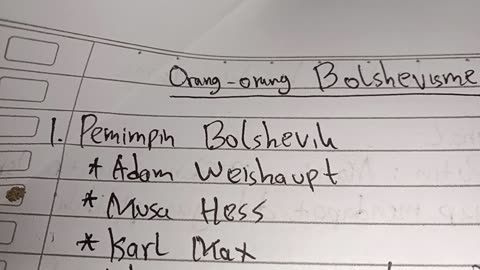 Orang-orang Bolshevisme
1. Pemimpin Bolshevik
* Adam Weishaupt
* Musa Hess
* Karl Max